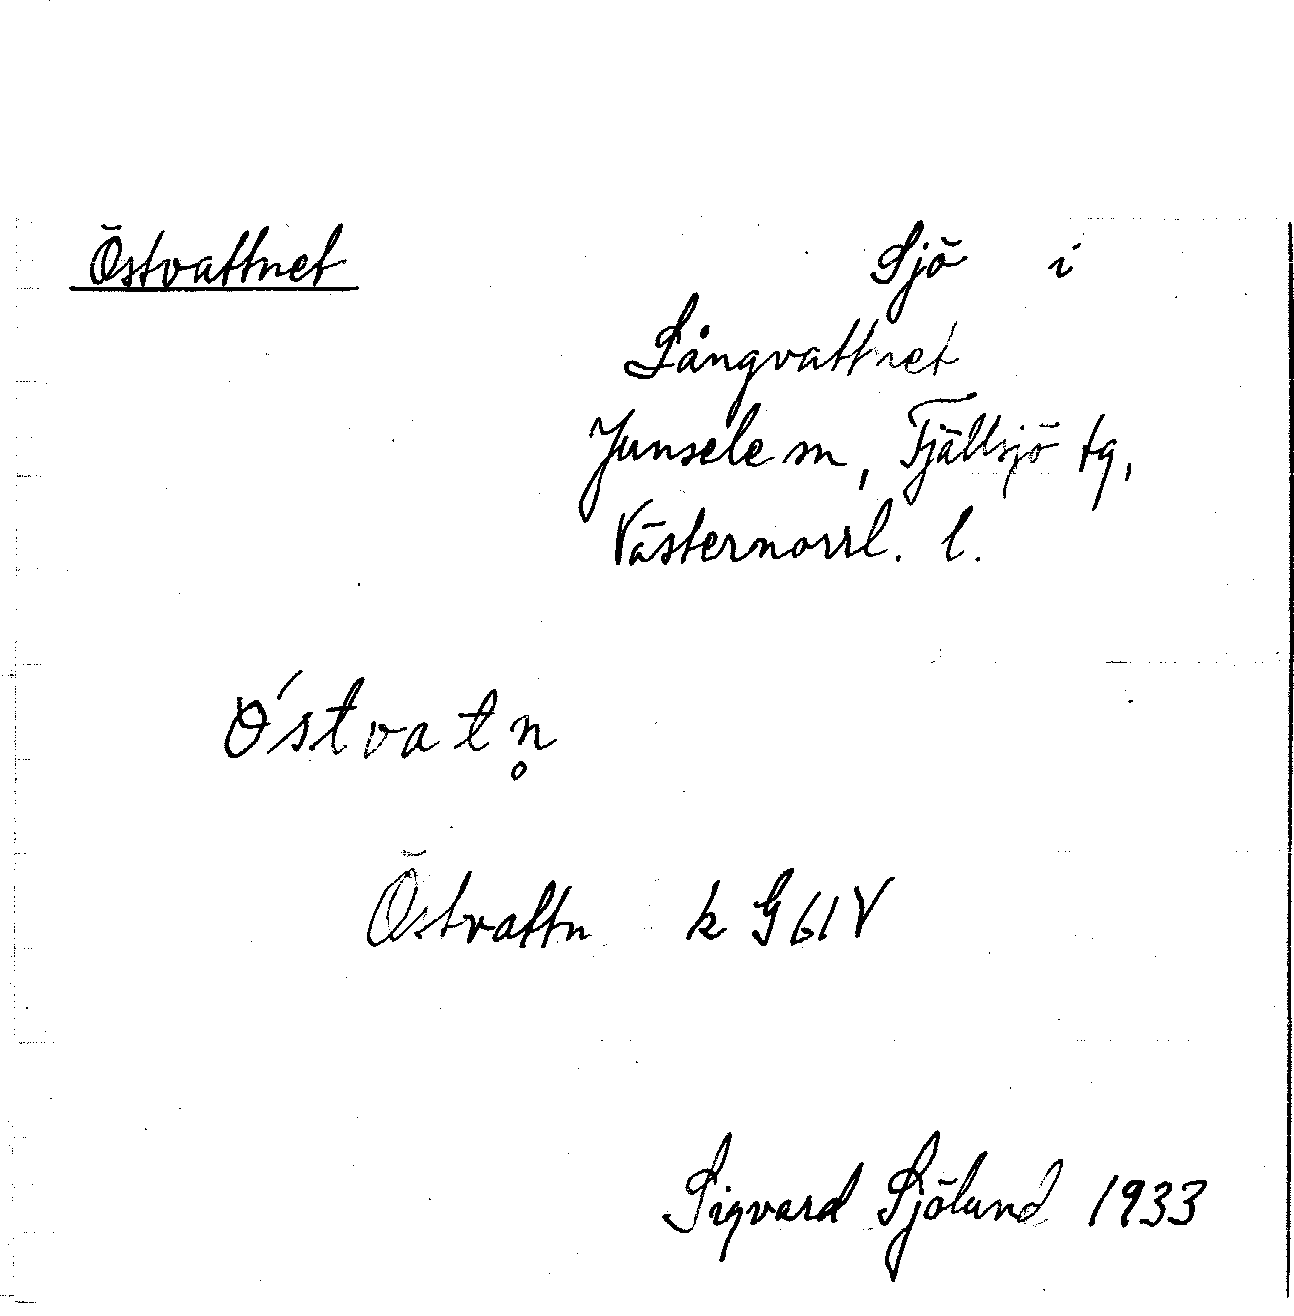 Östvattnet Sjö i
Långvattnet
Junsele sn, Fjällsjö tg,
Västernorrl. l.
ö́stvatn̥
Östvattn k G61V
Sigvard Sjölund 1933